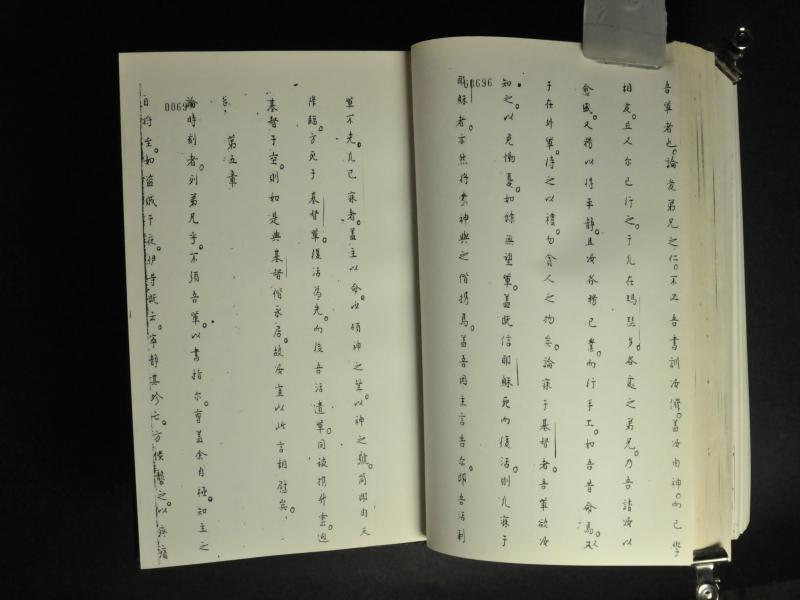 吾輩者也。論愛弟兄之仁。不必吾書訓汝儕。蓋汝由神。而已學
相愛。且又尔已行之。于凡在瑪各處之弟兄。乃吾請汝以
愈盛。又務以得平靜。且汝各務己業。而行手工。如吾昔命焉。又以
于在外輩待之以禮。勿貪人之物矣。論寐于基督者。吾輩欲汝
知之。以免慟憂。如餘無望輩。蓋既信耶穌死而復活。則凡寐于
耶穌者。亦然將為神與之偕攜焉。蓋吾因主言告尔。即吾活到
00696
輩不先凡已寐者。蓋主以命以頌神之聲。以神之號筒。即由天
降臨。方死于基督輩。復活為先。而後吾活遺輩。同被攜升雲迎
基督于空。則如是與基督偕永居。故汝宜以此言相慰矣。
第五章
論時刻者。列弟兄乎。不須吾輩。以書指尔曹。蓋余自極知主之
日將至。如盜賊于夜。伊等既云。寧靜其妙。方候誓之以
0069